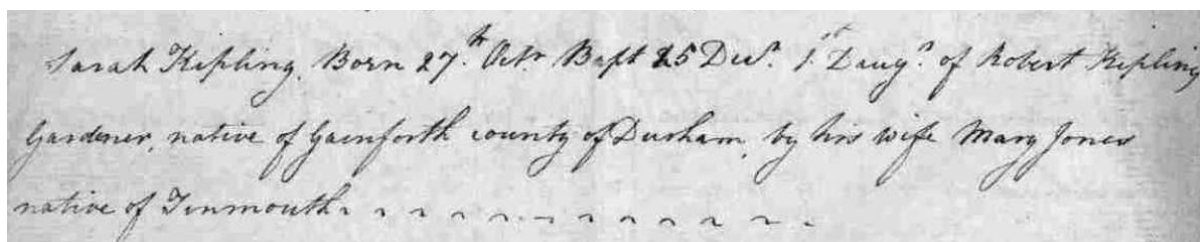 Sarah Kipling. Born 27th. Octr. Bapt 25 Decr. 1st Daugr. of Robert Kipling
Gardener, native of Gainforth county of Durham, by his wife Mary Jones
native of Tinmouth ~ ~ ~ ~ ~ ~ ~ ~ ~ ~ ~